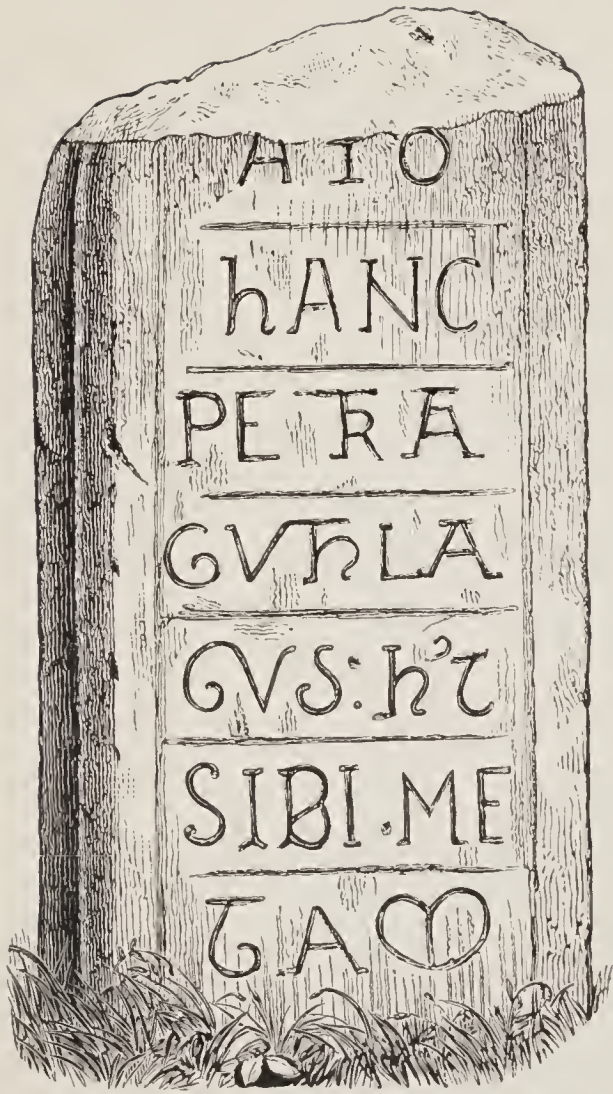 AIO
hANC
PETRA
GVThLA
CVS: h’T
SIBI.ME
TAM